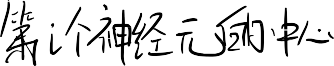 第i个神经元的中心